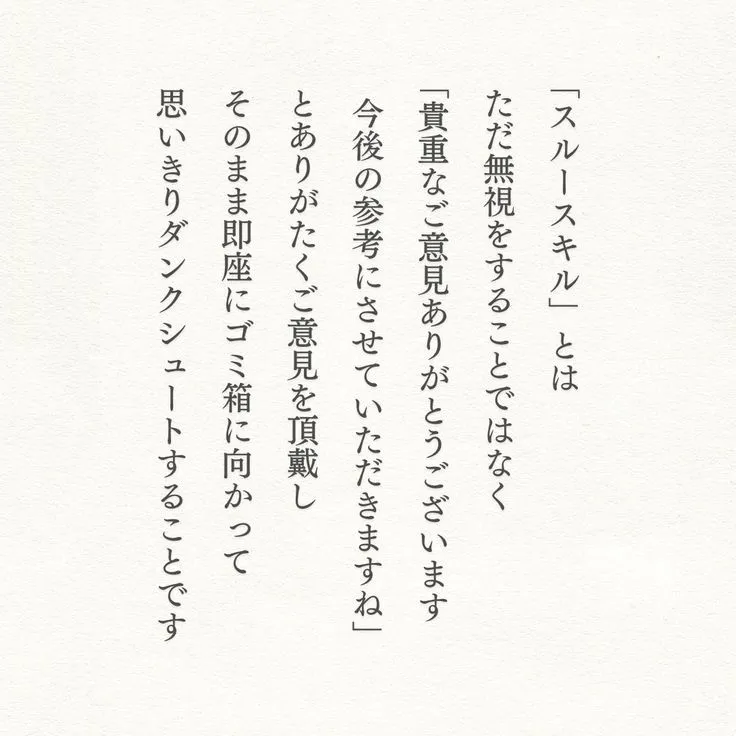 「スルースキル」とは
ただ無視をすることではなく
「貴重なご意見ありがとうございます
今後の参考にさせていただきますね」
とありがたくご意見を頂戴し
そのまま即座にゴミ箱に向かって
思いきりダンクシュートすることです